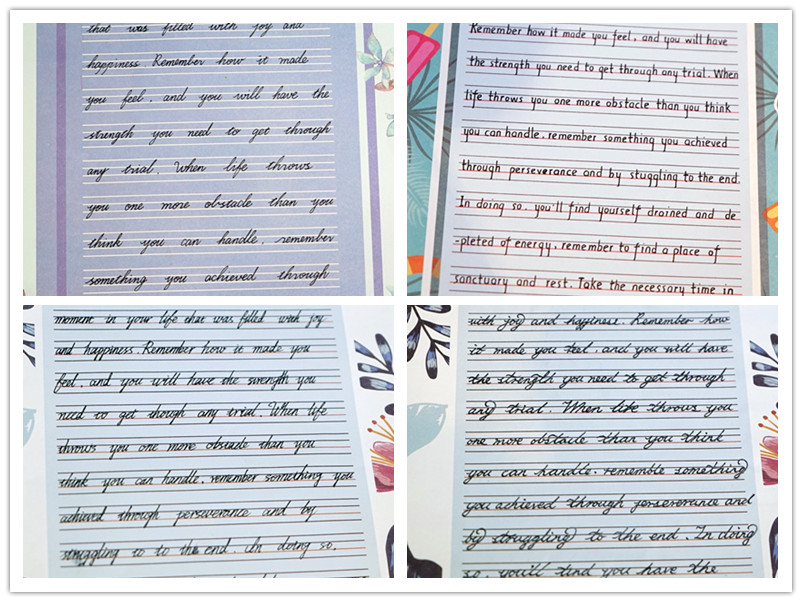 that was filled with joy and
happiness. Remember how it made
you feel, and you will have the
strength you need to get through
any trial. When life throws
you one more obstacle than you
think you can handle, remember
something you achieved through
Remember how it made you feel, and you will have
the strength you need to get through any trial. When
life throws you one more obstacle than you think
you can handle, remember something you achieved
through perseverance and by stuggling to the end.
In doing so, you'll find yourself drained and de
-pleted of energy, remember to find a place of
sanctuary and rest. Take the necessary time in
moment in your life that was filled with joy
and happiness. Remember how it made you
feel, and you will have the strength you
need to get though any trial. When life
throws you one more obstacle than you
think you can handle, remember something you
achieved through perseverance and by
struggling to to the end. In doing so,
with joy and happiness. Remember how
it made you feel, and you will have
the strength you need to get through
any trial. When life throws you
one more obstacle than you think
you can handle, remembe something
you achieved through perseverance and
by struggling to the end. In doing
so, you'll find you have the